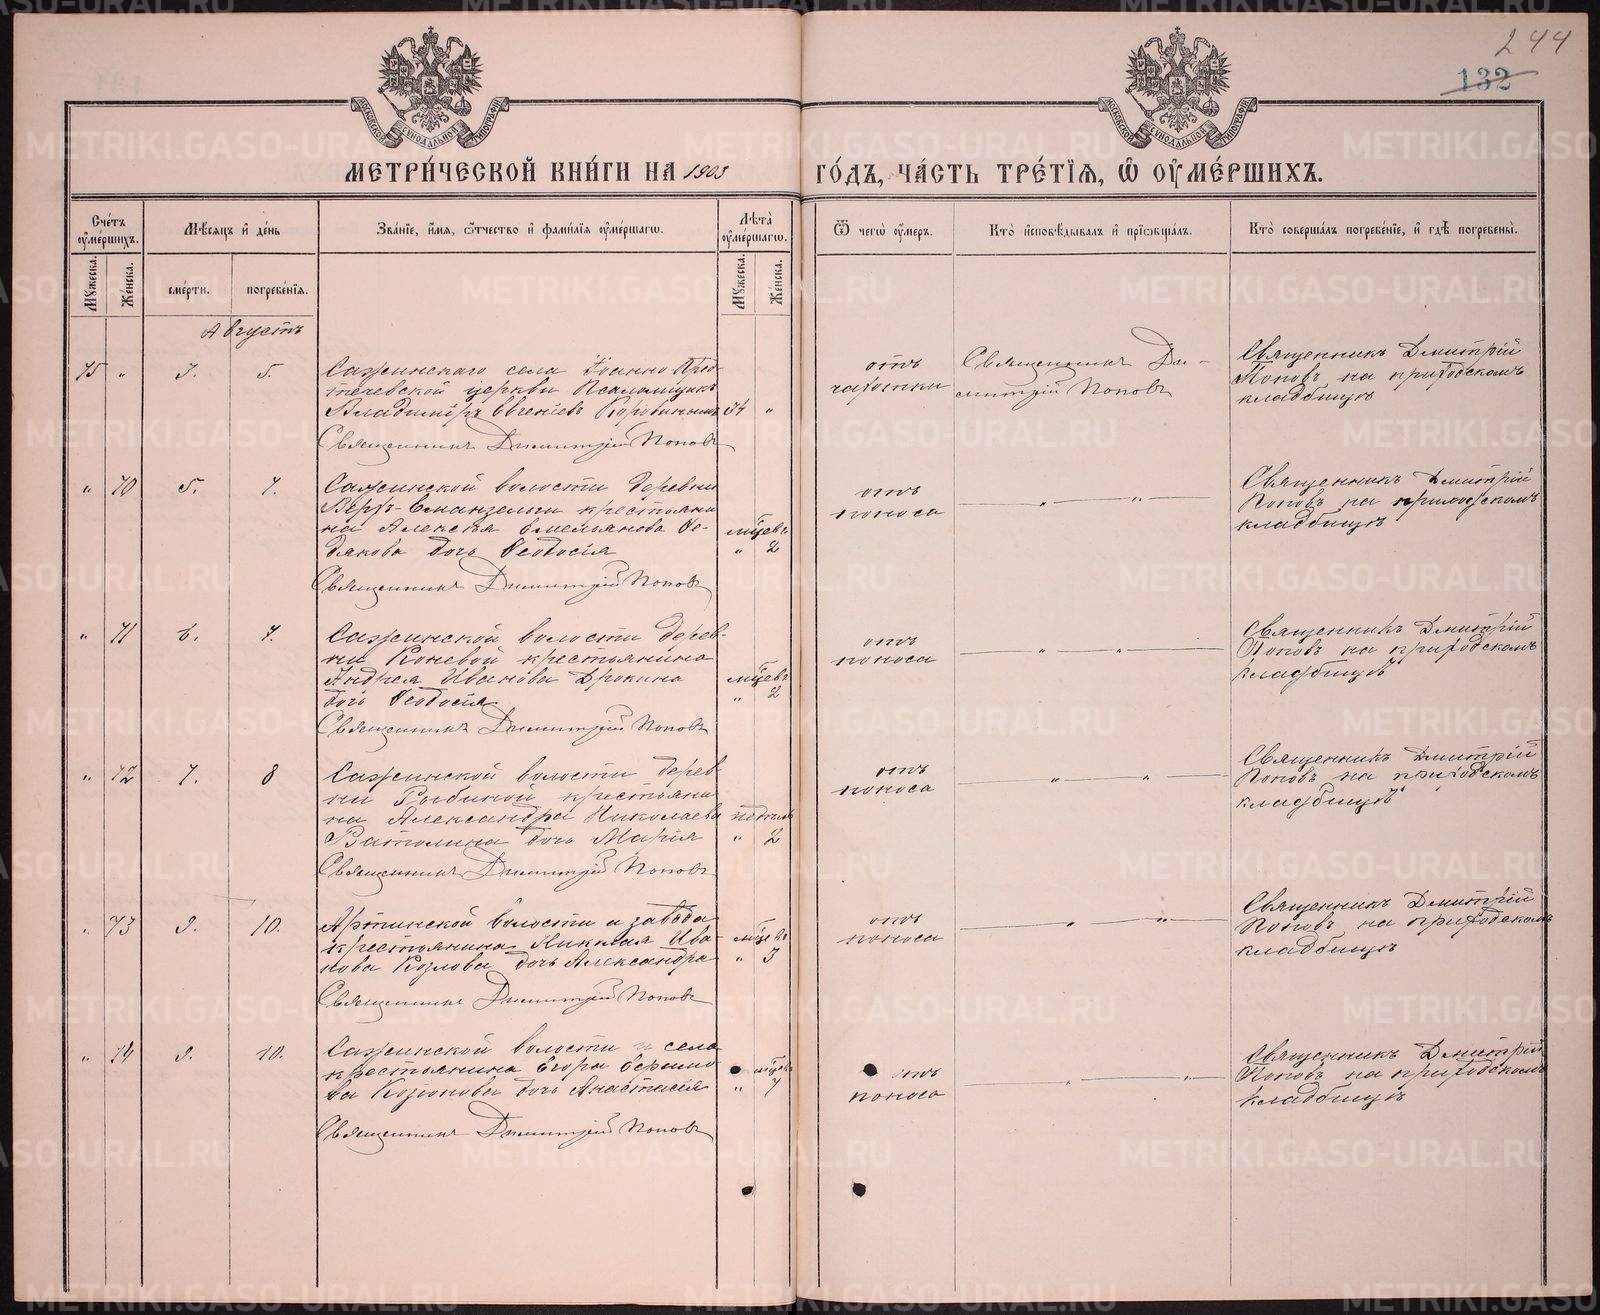 244
132
МЕТРИ́ЧЕСКОЙ КНИ́ГИ НА 1903 ГО́ДЪ, ЧА́СТЬ ТРЕ́ТІѦ, Ѽ ОУМЕ́РШИХЪ.
Сче́тъ оумѐршихъ.
Мꙋжеска.
Же́нска.
Мѣ́сѧцъ и де́нь
сме́рти.
погребе́нїѧ.
Зва́нїе, и́мѧ, ѻ́тчество и фами́лїѧ оуме́ршагѡ.
Лѣ́та оуме́ршагѡ.
Мꙋжеска.
Же́нска.
Ѿ чегѡ̀ оу́меръ.
Кто̀ исповѣ́дывалъ и прїѡбща́лъ.
Кто̀ соверша́лъ погребе́нїе, и гдѣ̀ погребены̀.
Августъ
75 " 3. 5.
Сажинскаго села Іоанно Пред-
течевской церкви Псаломщикъ
Владиміръ Евгеніевъ 34 "
Священникъ Димитрій Поповъ
отъ
чахотки
Священникъ Ди-
митрій Поповъ
Священникъ Дмитрій
Поповъ на приходскомъ
кладбищѣ
" 70 5. 7.
Сажинской волости деревни
Верх- крестьяни
на Алексѣя Емельянова Фе-
дякова дочь Феодосія
мѣсцевъ
" 2
Священникъ Димитрій Поповъ
отъ
поноса
" "
Священникъ Дмитрій
Поповъ на приходскомъ
кладбищѣ
" 71 6. 7.
Сажинской волости дерев-
ни Коневой крестьянина
Андрея Иванова Дрокина
дочь Феодосія
мѣсцевъ
" 2
Священникъ Димитрій Поповъ
отъ
поноса
" "
Священникъ Дмитрій
Поповъ на приходскомъ
кладбищѣ
" 72 7. 8
Сажинской волости дерев-
ни Рыбиной крестьяни
на Александра Николаева
Ватолина дочь Марія
недѣль
" 2
Священникъ Димитрій Поповъ
отъ
поноса
" "
Священникъ Дмитрій
Поповъ на приходскомъ
кладбищѣ
" 73 9. 10.
Артинской волости и завода
крестьянина Николая Ива-
нова Козлова дочь Александра
мѣсцевъ
" 3
Священникъ Димитрій Поповъ
отъ
поноса
" "
Священникъ Дмитрій
Поповъ на приходскомъ
кладбищѣ
" 74 9. 10.
Сажинской волости и села
крестьянина Егора Ефимо
ва Козюкова дочь Анастасія
мѣсцевъ
" 7
Священникъ Димитрій Поповъ
отъ
поноса
" "
Священникъ Дмитрій
Поповъ на приходскомъ
кладбищѣ
METRIKI.GASO-URAL.RU